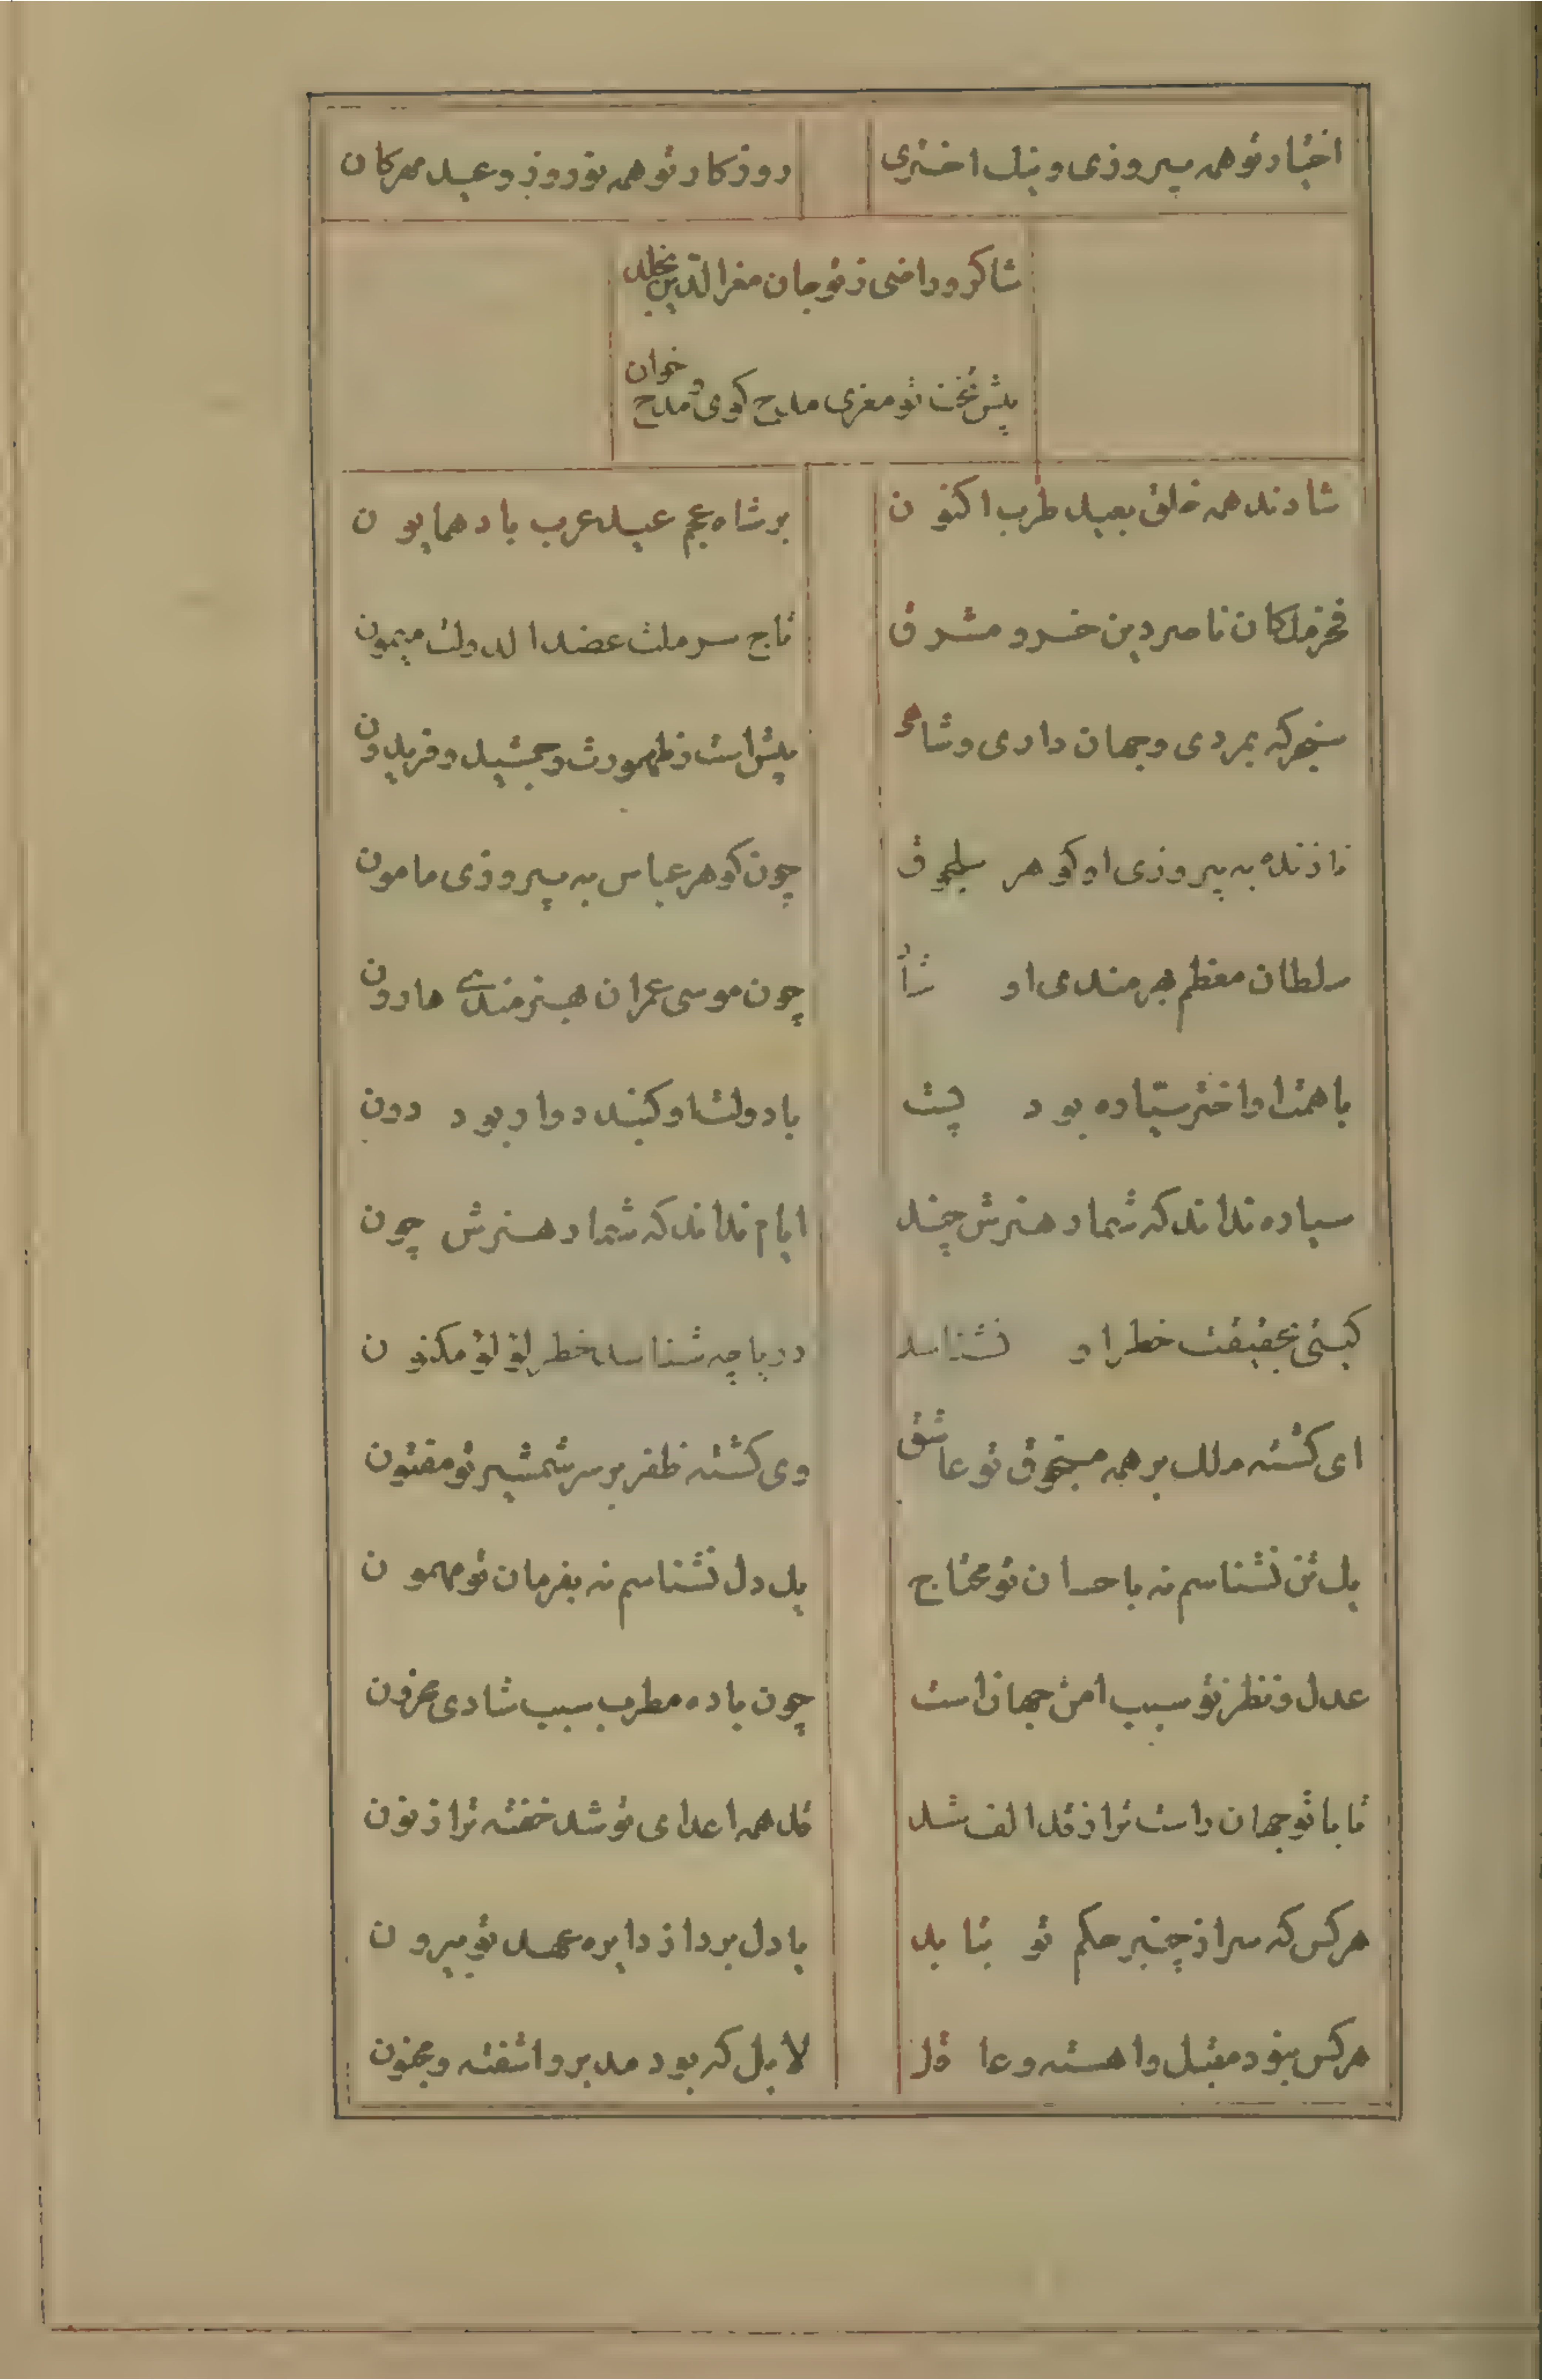 اختیار تو همه پیروزی و نیک اختری
روزکار تو همه نوروز و عید مهرکان
شاکر و راضی ز تو جان معزالدین بخلد
پیش تخت تو معزی مدح کوی و مدح خوان
شادند همه خلق بعید طرب اکنون
بر شاه عجم عید عرب باد همایون
فخر ملکان ناصر دین خسرو مشرق
تاج سر ملت عضد الدولت میمون
سنجر که بمردی و جهان داری و شاهی
پیش است ز طهمورث و جمشید و فریدون
نازنده به پیروزی او کوهر سلجوق
چون کوهر عباس به پیروزی مامون
سلطان معظم بهرمندی او شاد
چون موسی عمران بهنرمندی هارون
با همت او اختر سیّاره بود پست
با دولت او کنبد دوار بود دون
سیاره نداند که شمار هنرش چند
ایام نداند که شمار هنرش چون
کیتی بحقیقت خطر او نشناسد
دریا چه شناسد خطر لؤلؤ مکنون
ای کشته ملک بر همه منجوق تو عاشق
وی کشته ظفر بر سر شمشیر تو مفتون
یک تن نشناسم نه باحسان تو محتاج
یک دل نشناسم نه بفرمان تو مرهون
عدل و نظر تو سبب امن جهان است
چون باده مطرب سبب شادی محزون
تا با تو جهان راست تر از قد الف شد
قد همه اعدای تو شد خفته تر از نون
هر کس که سر از چنبر حکم تو بتابد
یا دل برد از دایره عهد تو بیرون
هر کس نبود مقبل و اهسته و عاقل
لا بل که بود مدبر و اشفته و مجنون